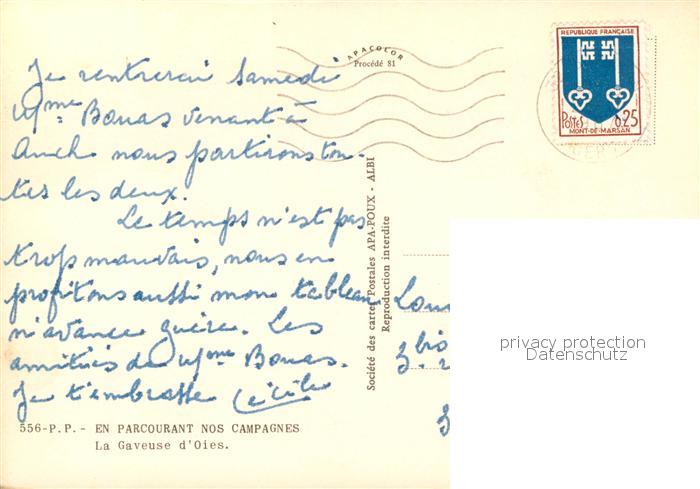 Je rentrerai Samedi
Mme Bouas venant à
Auch nous partirons tou-
tes les deux.
Le temps n'est pas
trop mauvais, nous en
profitons aussi mon tableau
n'avance guère. Les
amitiés de Mme Bouas.
Je t'embrasse Cécile
556-P.P.- EN PARCOURANT NOS CAMPAGNES
La Gaveuse d'Oies.
Société des cartes Postales APA-POUX - ALBI
Reproduction interdite
APACOLOR
Procédé 81
REPUBLIQUE FRANÇAISE
Postes 0,25
MONT-DE-MARSAN
Lou
3 bis
privacy protection
Datenschutz